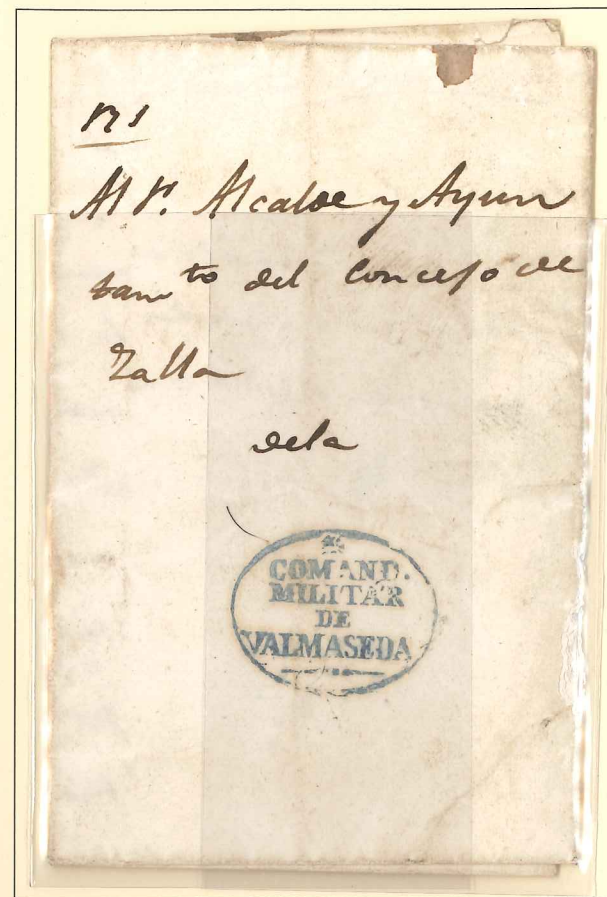 Al Sr. Alcalde y Ayun
tamto del Concejo de
Zalla
dela
COMAND.
MILITAR
DE
VALMASEDA